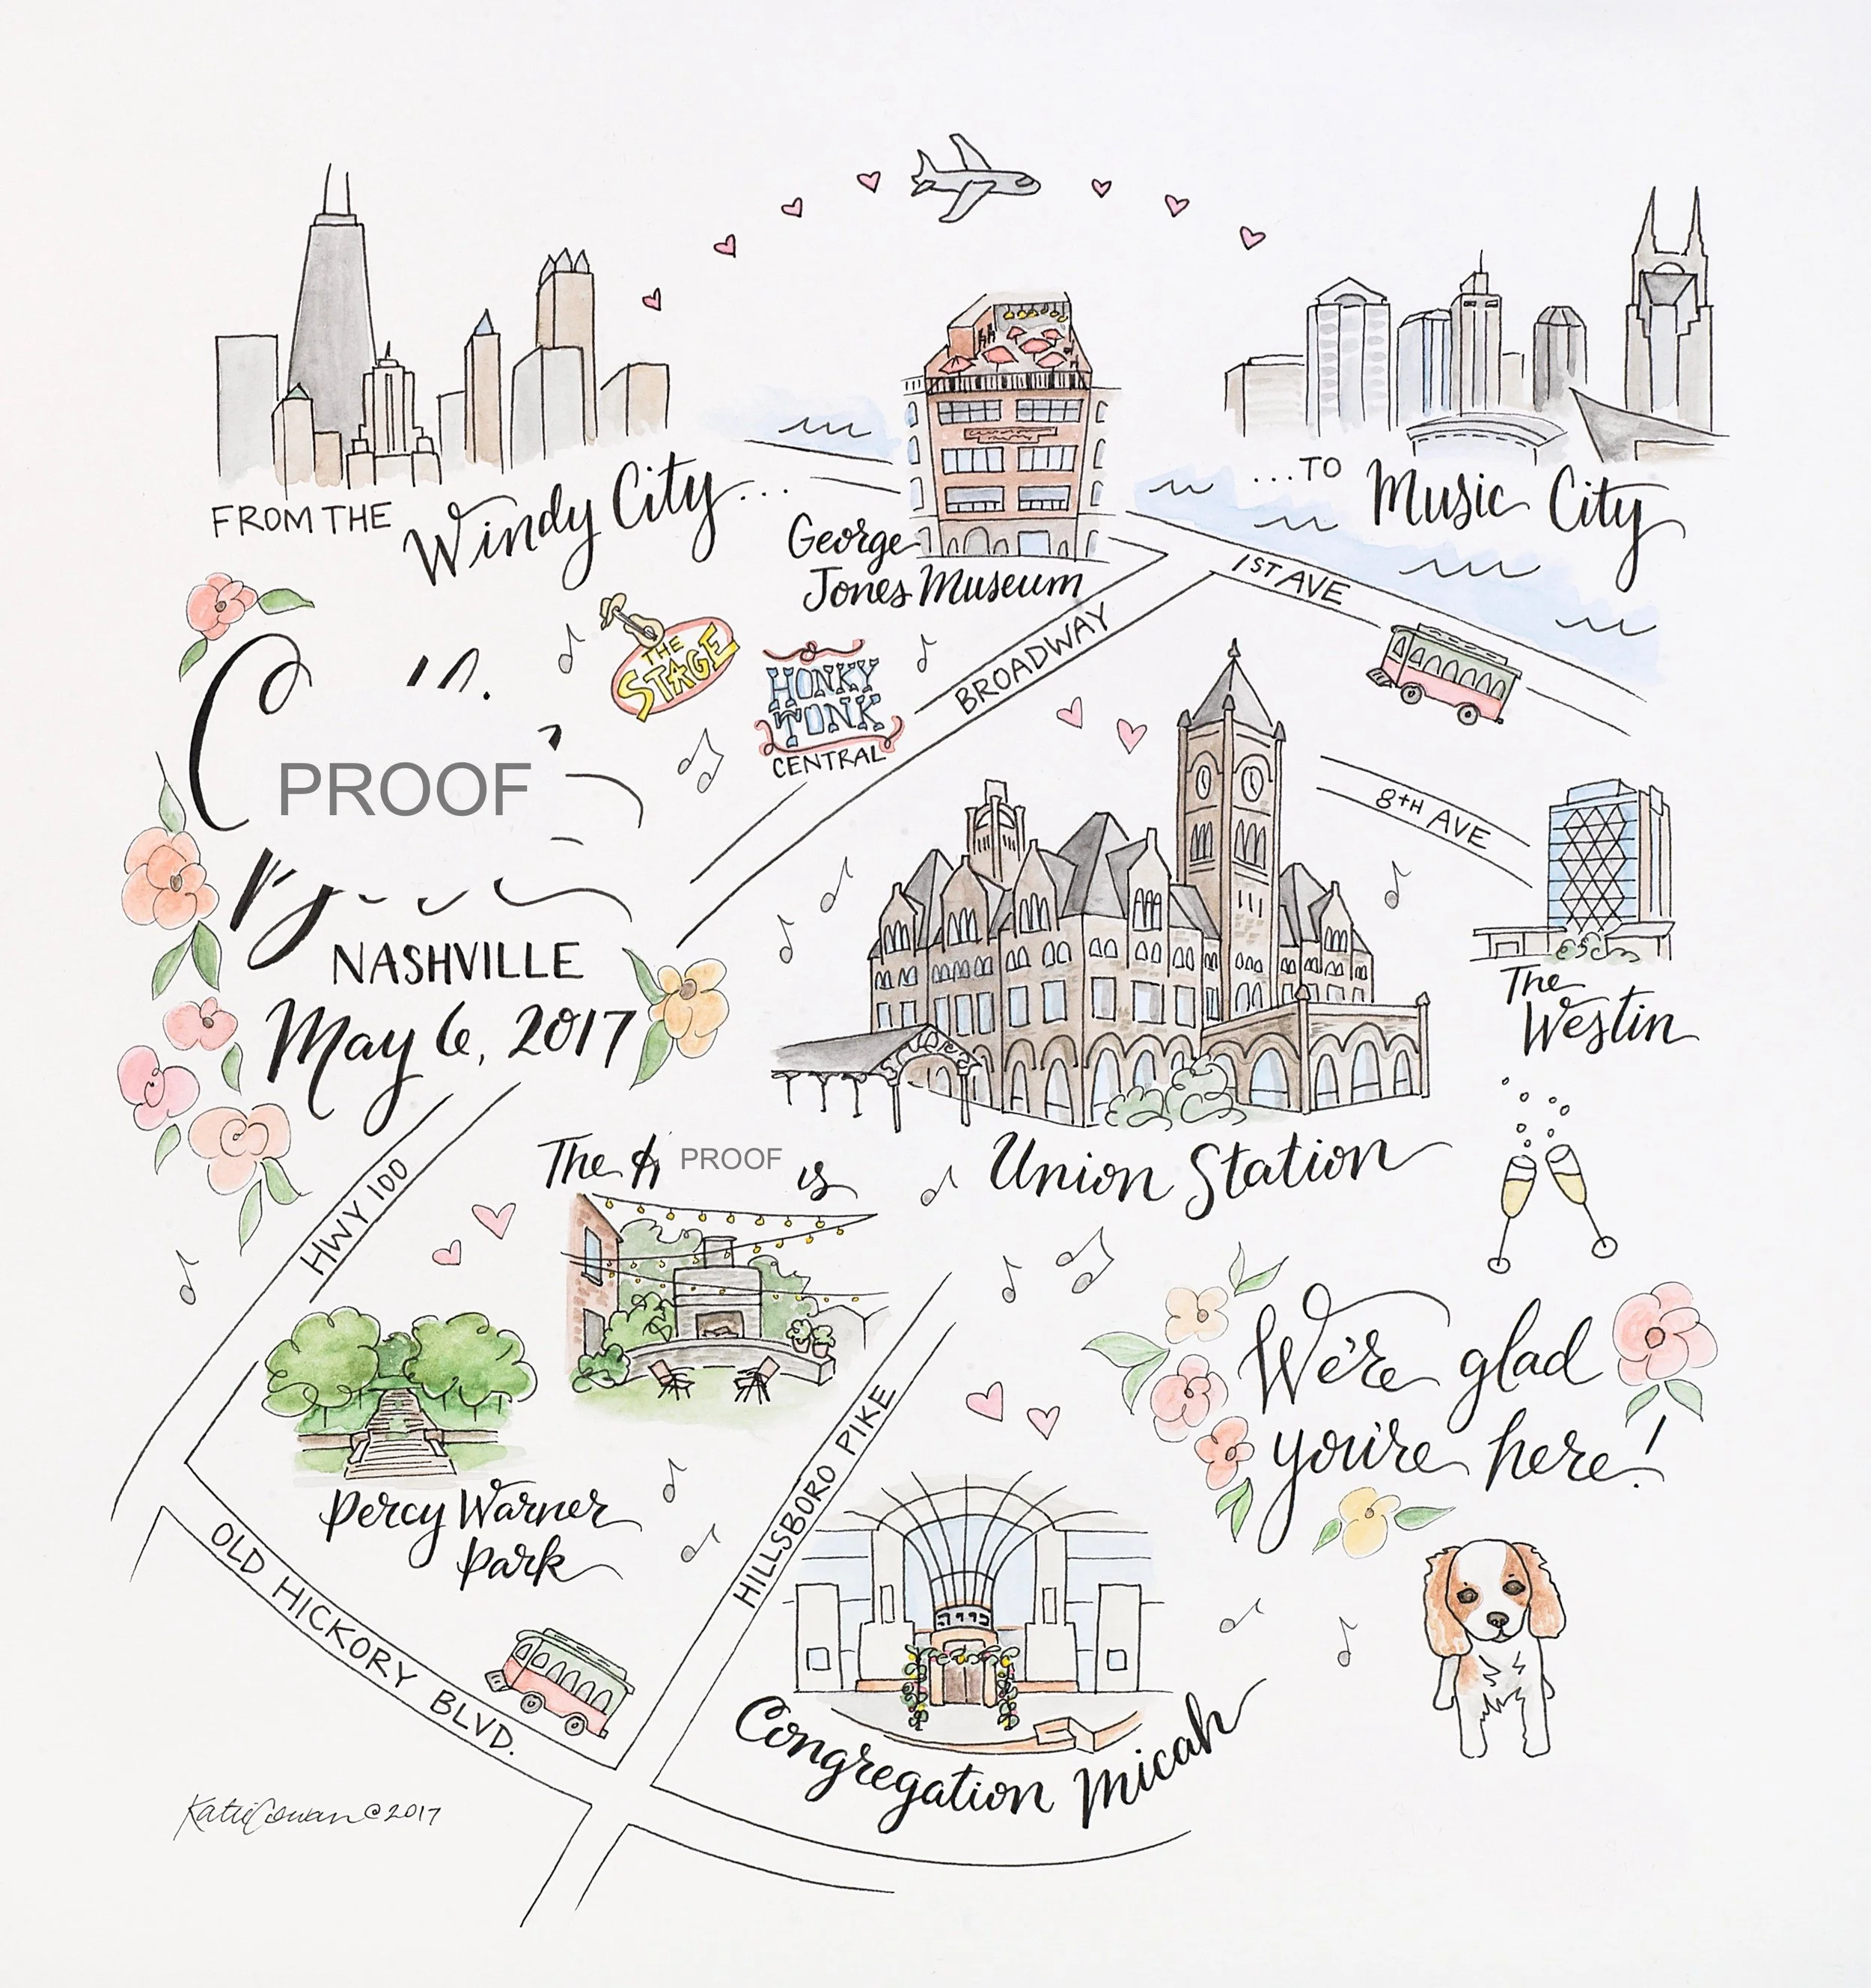 FROM THE Windy City...
...TO Music City
George
Jones Museum
1ST AVE
THE
STAGE
HONKY
TONK
CENTRAL
BROADWAY
PROOF
8TH AVE
NASHVILLE
May 6, 2017
The
Westin
The PROOF
Union Station
HWY 100
We're glad
you're here!
Percy Warner
Park
HILLSBORO PIKE
OLD HICKORY BLVD.
Congregation Micah
Katie Cowan © 2017